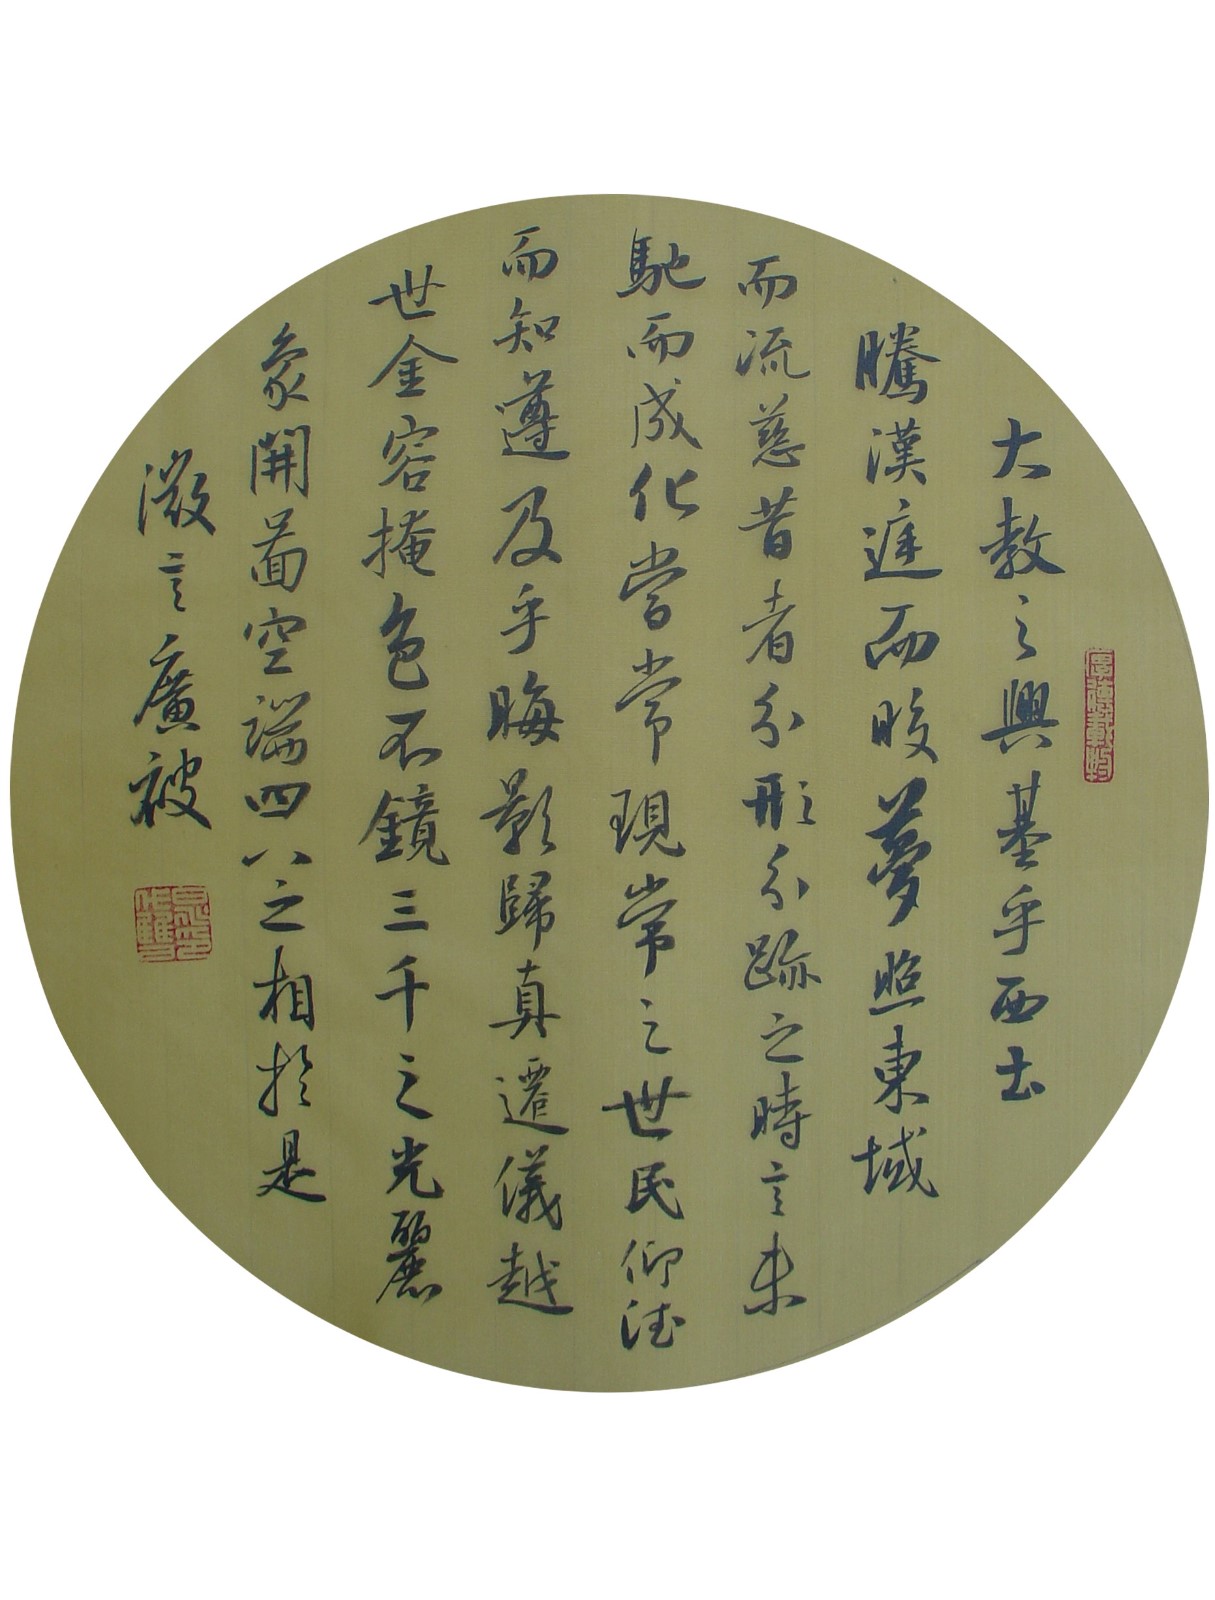 厚德載物
大教之興基乎西土
騰漢庭而皎夢照東域
而流慈昔者分形分跡之時言未
馳而成化當常現常之世民仰德
而知遵及乎晦影歸真遷儀越
世金容掩色不鏡三千之光麗
象開圖空端四八之相於是
微言廣被